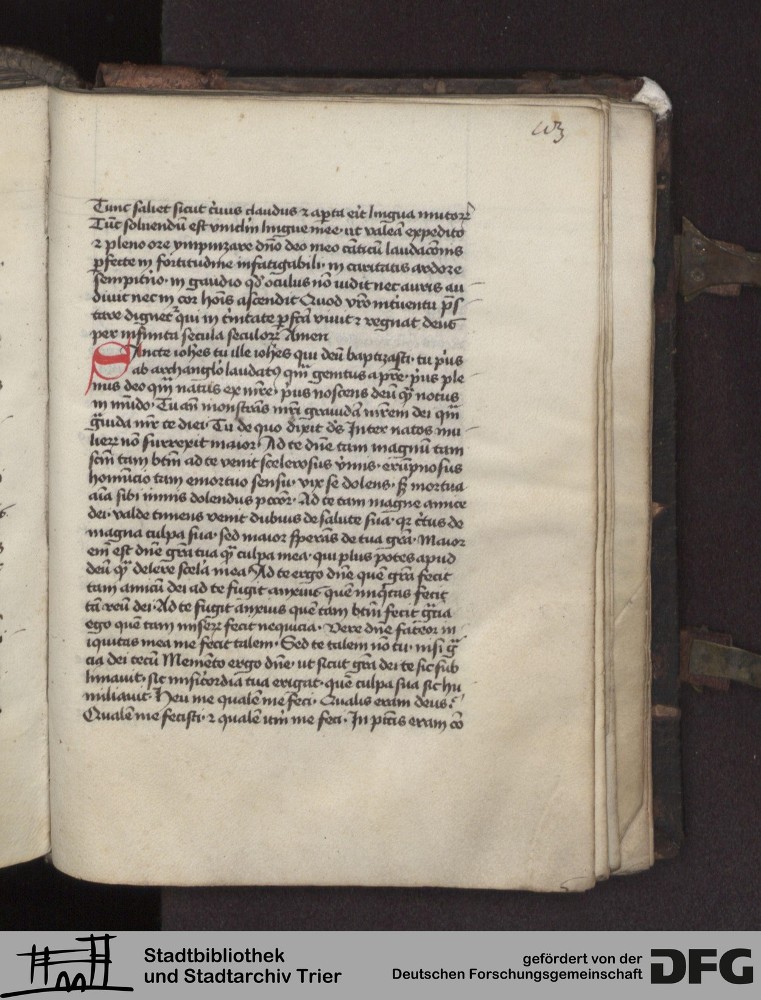 Tunc saliet sicut c̾uus claudus ⁊ ap̲ta eit̾ lingua mutoꝝ
Tūc soluendū est vinclm̄ lingue mee · ut valeā expedito
⁊ pleno ore ympnizare dn̄o deo meo cāticū laudacōnis
p̲fecte in fortitudine infatigabili · in caritatis ardore
sempit̾no · in gaudio qd̾ oculus nō uidit nec auris au
diuit nec in cor hoīs ascendit Quod
tare dignet̾ qui in t̾nitate p̲fcā viuit ⁊ regnat deus
per infinita secula seculoꝝ Amen
Sancte ioh̄es tu ille ioh̄es qui deū baptizasti · tu p̾us
ab archang̾lo laudatꝰ qm̄ genitus a pr̄e · p̾us ple
nus deo qm̄ natus ex mr̄e · p̾us noscens deū qm̄ notus
in mūdo · Tu an̄ monstrās mr̄i grauidā mr̄em dei qm̄
g̾uida mr̄ te diei · Tu de quo dixit dn̄s Inter natos mu
lieꝝ nō surrexit maior · Ad te dn̄e tam magnū tam
scm̄ tam btm̄ ad te venit scelerosus v̾mis · erūpnosus
homūcio tam emortuo sensu · vix se dolens · sꝫ mortua
aīa sibi nimis dolendus pctōr · Ad te tam magne amice
dei · valde timens venit dubius de salute sua · qꝛ c̾tus de
magna culpa sua · sed maior sperās de tua gr̄a · Maior
em̄ est dn̄e gr̄a tua qm̄ culpa mea · qui plus potes apud
deū qm̄ delere scel̾a mea · Ad te ergo dn̄e quē gr̄a fecit
tam amicū dei ad te fugit anxius quē iniq̾tas fecit
tā reū dei · Ad te fugit anxius quē tam btm̄ fecit gr̄cia
ego quē tam miseꝝ fecit nequicia · Vere dn̄e fateor in
iquitas mea me fecit talem · Sed te talem nō tu · nisi gr̄
cia dei tecū Memēto ergo dn̄e · ut sicut gr̄a dei te sic sub
limauit · sic mis̾icordia tua erigat · quē culpa sua sic hu
miliauit · Heu me qualē me feci · Qualis eram deus ·
Qualē me fecisti · ⁊ qualē iter̄ me feci · In pctīs eram cō
Stadtbibliothek
und Stadtarchiv Trier
gefördert von der
Deutschen Forschungsgemeinschaft
DFG